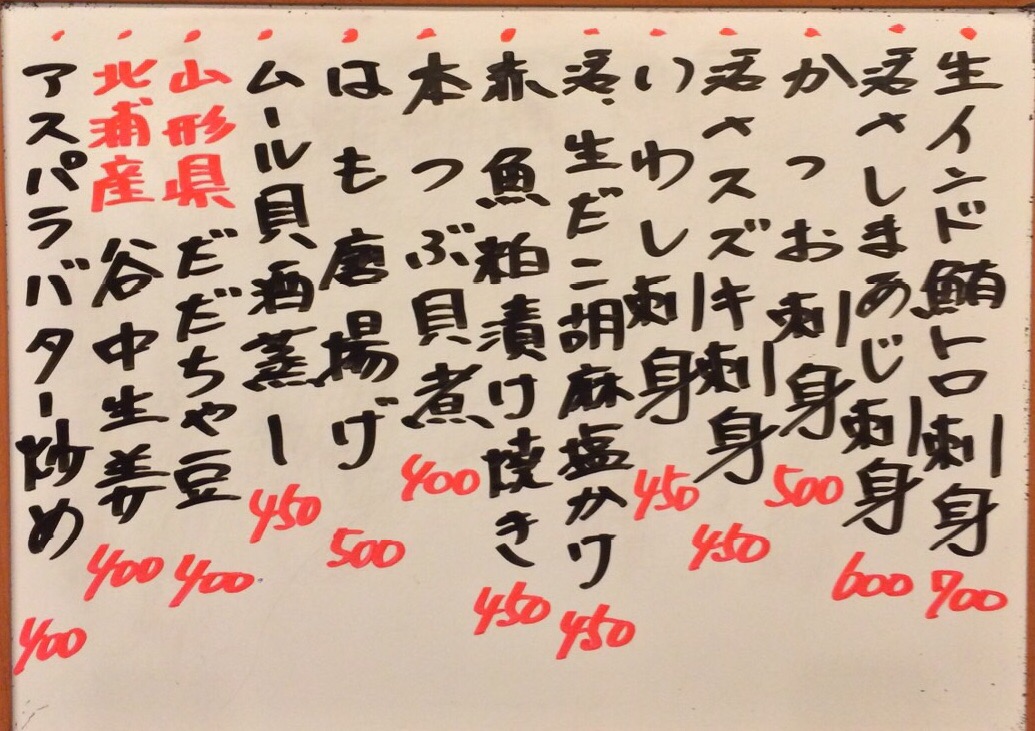 生インド鮪トロ刺身 700
活〆しまあじ刺身 600
かつお刺身 500
活〆スズキ刺身 450
いわし刺身 450
活、生だこ胡麻塩かけ 450
赤魚粕漬け焼き 450
本つぶ貝煮 400
はも唐揚げ 500
ムール貝酒蒸し 450
山形県だだちゃ豆 400
北浦産谷中生姜 400
アスパラバター炒め 400